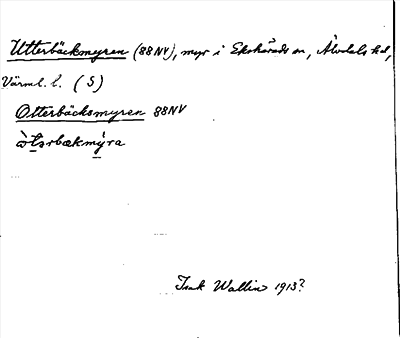 Utterbäcksmyren (88NV), myr i Ekshärads sn, Älvdals hd,
Värml. l. (S)
Otterbäcksmyren 88NV
òtərbækmýra
Isak Wallin 1913?